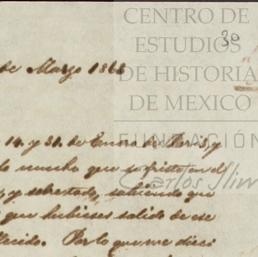 CENTRO DE
ESTUDIOS
DE HISTORIA
DE MEXICO
FUNDACIÓN
Carlos Slim
30
de Marzo 186
14. y 31. de Enero de Paris, y
lo mucho que sufriste en el
y sobre todo, sabiendo que
que hubieses salido de ese
Por lo que me